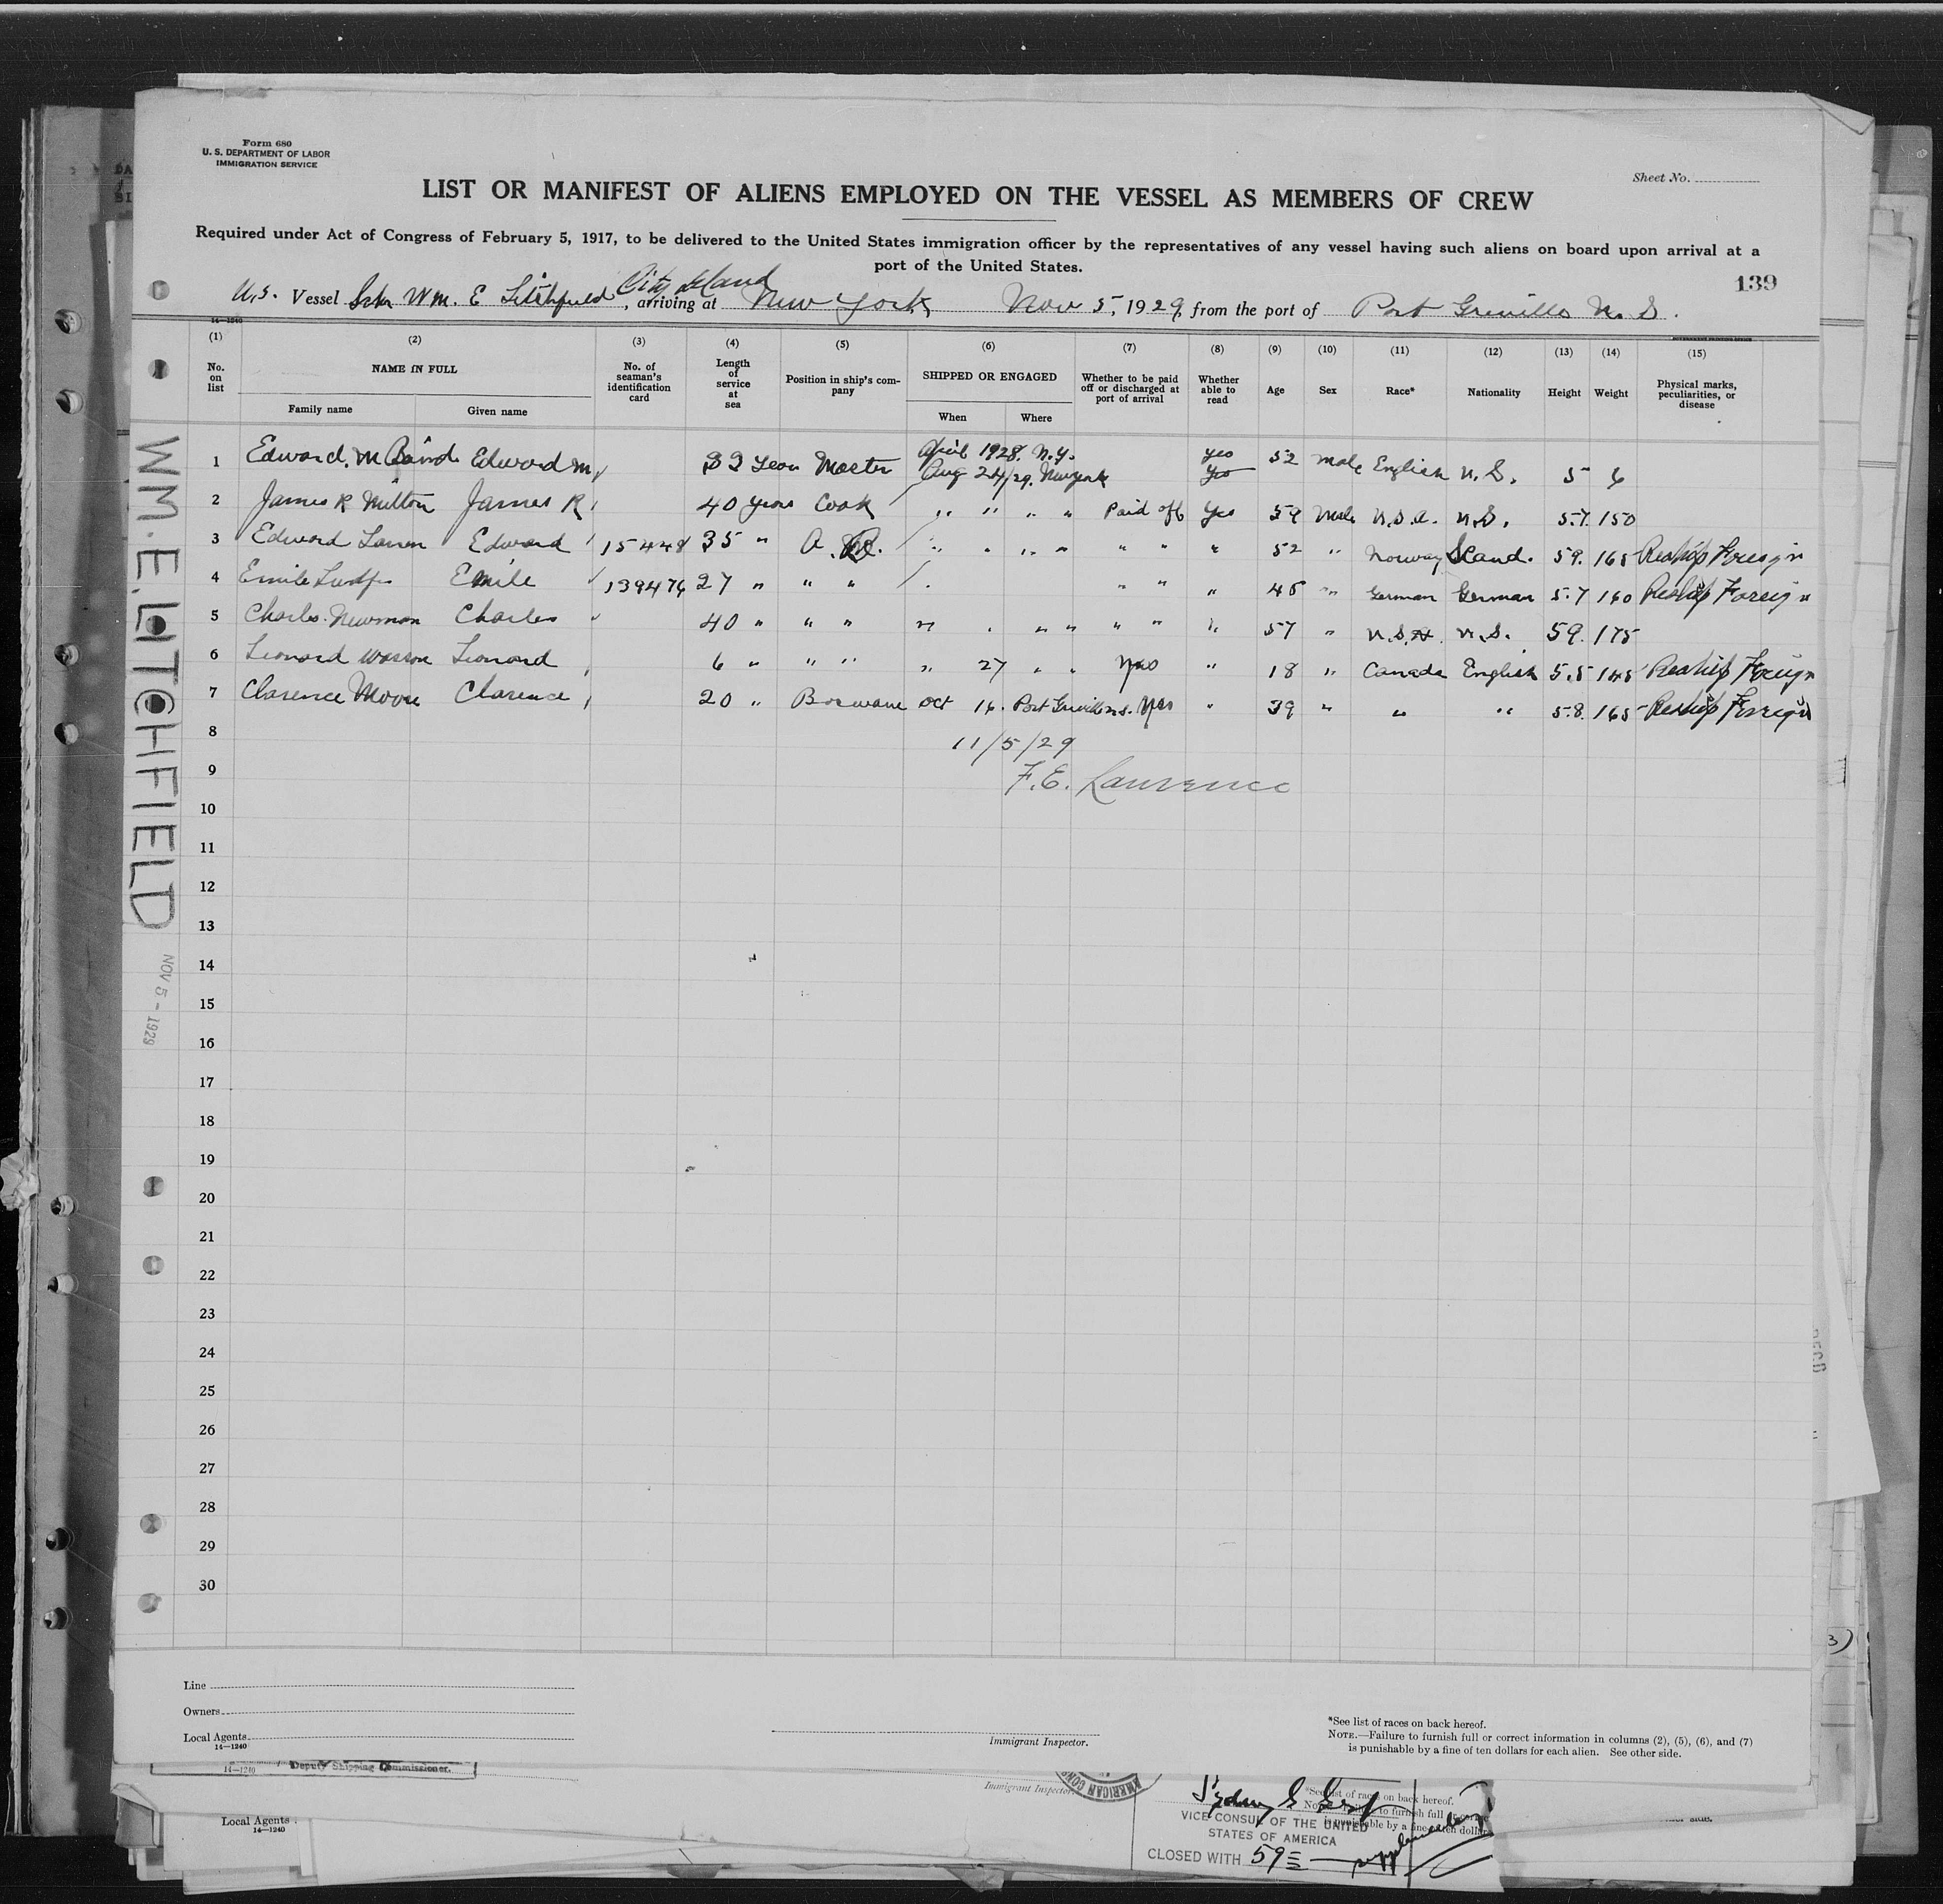 Form 680
U. S. DEPARTMENT OF LABOR
IMMIGRATION SERVICE
Sheet No.
LIST OR MANIFEST OF ALIENS EMPLOYED ON THE VESSEL AS MEMBERS OF CREW
Required under Act of Congress of February 5, 1917, to be delivered to the United States immigration officer by the representatives of any vessel having such aliens on board upon arrival at a
port of the United States.
139
City Island
U.S. Vessel Schr Wm. E Litchfield, arriving at New York Nov 5, 1929, from the port of Port Greville N. S.
14—1240
(1) (2) (3) (4) (5) (6) (7) (8) (9) (10) (11) (12) (13) (14) (15)
No. on list NAME IN FULL Family name Given name No. of seaman's identification card Length of service at sea Position in ship's company SHIPPED OR ENGAGED When Where Whether to be paid off or discharged at port of arrival Whether able to read Age Sex Race* Nationality Height Weight Physical marks, peculiarities, or disease
April 1928. N.Y. yes
1 Edward. M Baird Edward M, 32 Years Master Aug 24/29. New York Yes 52 Male English U. S. 5 6
2 James R Milton James R 40 years Cook " " " " Paid off Yes 59 Male U.S.A. U.S. 5.7. 150
3 Edward Edward 15448 35 " A. " " " " " " " 52 " Norway Scand. 59. 165 Reship Foreign
4 Emile Emile 139476 27 " " " " " " 45 " German German 5.7 160 Reship Foreign
5 Charles Newman Charles 40 " " " " " " " " " 57 " U.S.A. U.S. 59. 175
6 Leonard Wasson Leonard 6 " " " " 27 " " Yes " 18 " Canada English 5.5 145 Reship Foreign
7 Clarence Moore Clarence 20 " Boswane Oct 16. Port Greville N.S. Yes " 39 " " " 5.8. 165 Reship Foreign
8 11/5/29
9 F.E. Lawrence
10
11
12
13
14
15
16
17
18
19
20
21
22
23
24
25
26
27
28
29
30
WM. E. LITCHFIELD
NOV 5 - 1929
Line
Owners
Local Agents
14—1240
Immigrant Inspector.
*See list of races on back hereof.
NOTE.—Failure to furnish full or correct information in columns (2), (5), (6), and (7)
is punishable by a fine of ten dollars for each alien. See other side.
14—1240
Deputy Shipping Commissioner.
Immigrant Inspector.
AMERICAN CON
*See list of races on back hereof.
Local Agents
14—1240
VICE CONSUL OF THE UNITED
STATES OF AMERICA
CLOSED WITH 59